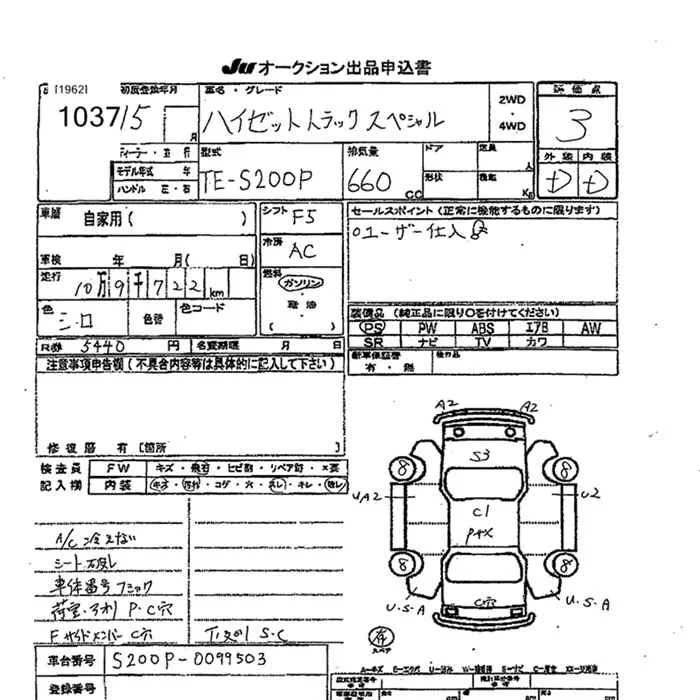 JU オークション出品申込書
[1962] 初度登録年月 車名・グレード 評価点
10371/5 月 ハイゼットトラックスペシャル 2WD ・ 4WD 3
ディーラー・並行 型式 排気量 ドア 定員 人 外装 内装
モデル年式 年 TE-S200P 660 CC 形状 積載 Kg D D
ハンドル 左・右
車歴 自家用( ) シフト F5 セールスポイント(正常に機能するものに限ります)
冷房 AC ○ユーザー仕入
車検 年 月( 日)
走行 10万9千722km 燃料 ガソリン ・ 軽油 ( )
色 シロ 色替 色コード
装備品(純正品に限り○を付けてください)
PS PW ABS エアB AW
SR ナビ TV カワ
R券 5440 円 名変期限 月 日 新車保証書 有・無 後付品
注意事項申告欄(不具合内容等は具体的に記入して下さい)
修復歴 有 [箇所 ]
検査員 FW キズ・飛石・ヒビ割・リペア跡・×要
記入欄 内装 キズ・汚れ・コゲ・穴・スレ・キレ・破レ
A2 A2
S3
8 8
UA2 C1 U2
Pキズ
8 8
C穴
U.S.A U.S.A
A/C冷えない
シート破れ
車体番号
荷室・アオリ P・C穴
Fサイドメンバー C穴 下廻り S.C
スペア
車台番号 S200P-0099503
登録番号
A=キズ E=エクボ U=凹み W=補修跡 S=サビ C=腐食 X=要交換